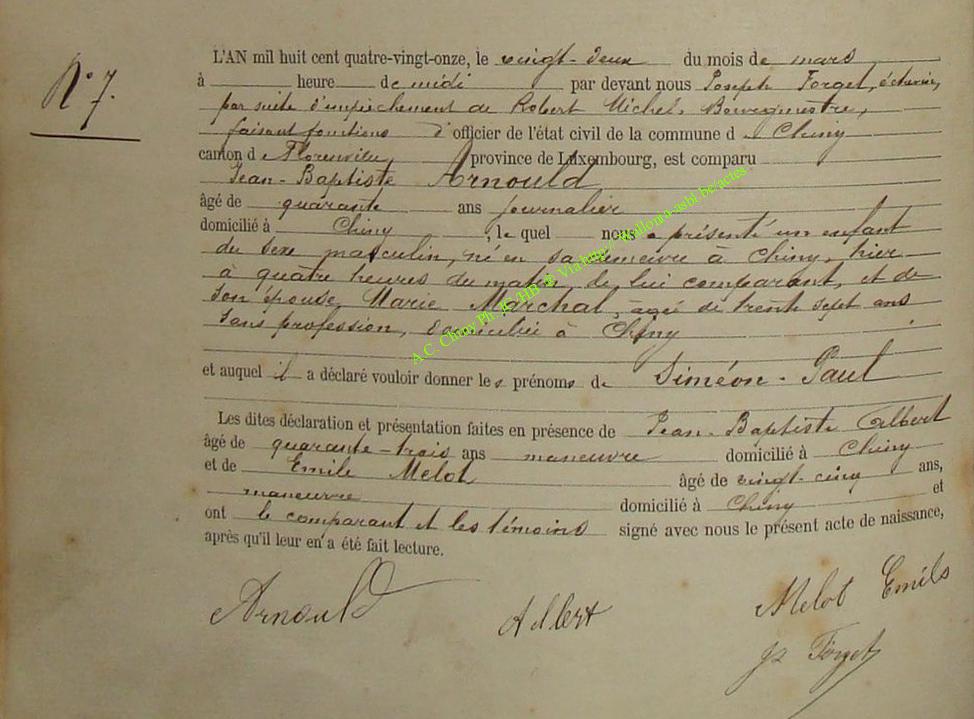 N° 7.
L'AN mil huit cent quatre-vingt-onze, le vingt-deux du mois de mars
à heure de midi par devant nous Joseph Forget, échevin,
par suite d'empêchement de Robert Michel, Bourgmestre,
faisant fonctions d'officier de l'état civil de la commune d e Chiny
canton d e Florenville, province de Luxembourg, est comparu
Jean-Baptiste Arnould
âgé de quarante ans journalier
domicilié à Chiny, le quel nous a présenté un enfant
du sexe masculin, né en sa demeure à Chiny, hier
à quatre heures du matin, de lui comparant, et de
son épouse, Marie Marchal, agée de trente sept ans
sans profession, domiciliée à Chiny
et auquel il a déclaré vouloir donner le s prénoms de Siméon-Paul
Les dites déclaration et présentation faites en présence de Jean-Baptiste Albert
âgé de quarante-trois ans maneuvre domicilié à Chiny
et de Emile Melot âgé de vingt-cinq ans,
maneuvre domicilié à Chiny et
ont le comparant et les témoins signé avec nous le présent acte de naissance,
après qu'il leur en a été fait lecture.
Arnould Albert Melot Emile
Forget
A.C. Chiny Ph. Wallonia-asbl.be/actes